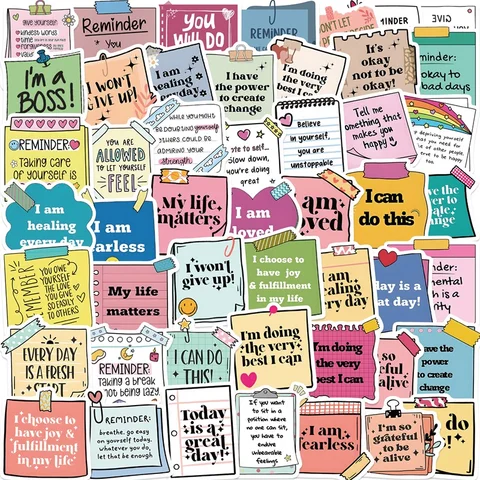 Give yourself:
kindest words
time
forgiveness
Reminder
You
YOU
WILL DO
REMINDER
DON'T LET
MINDER
GIVE
I'm a
BOSS!
I WON'T
GIVE UP!
I am
healing
everyday
I have
the power
to create
change
I'm doing
the very
best I can
It's
okay
not to be
okay!
okay to
bad days
REMINDER
Taking care
of yourself is
YOU ARE
ALLOWED
TO LET YOURSELF
FEEL
WHILE YOU'RE
DOUBTING yourself
OTHERS COULD BE
ADMIRING YOUR
strength
note to self..
Slow down,
you're doing
great
Believe
in yourself,
you are
unstoppable
Tell me
something that
makes you
happy
I am
healing
every day
I am
fearless
My life
matters
I am
loved
am
loved
I can
do this
ve the
er to
ange
REMEMBER
YOU OWE
YOURSELF
THE LOVE
YOU GIVE
SO EASILY
TO OTHERS
My life
matters
I won't
give up!
I choose to
have joy &
fulfillment
in my life
I am
day is a
at day!
nder:
mental
h is a
ity
EVERY DAY
IS A FRESH
START
REMINDER:
TAKING A BREAK
NOT BEING LAZY.
I CAN DO
THIS!
I'm doing
the very
best I can
I'm doing
the very
best I can
so
eful
alive
have the
power to
create
change
I choose to
have joy &
fulfillment
in my life
REMINDER:
breathe. go easy
on yourself today.
whatever you do,
let that be enough
Today
is a
great
day!
If you want
to sit in a
position where
no one can sit,
you have to
endure
unbearable
feelings
I am
fearless
I'm so
grateful
to be
alive
do